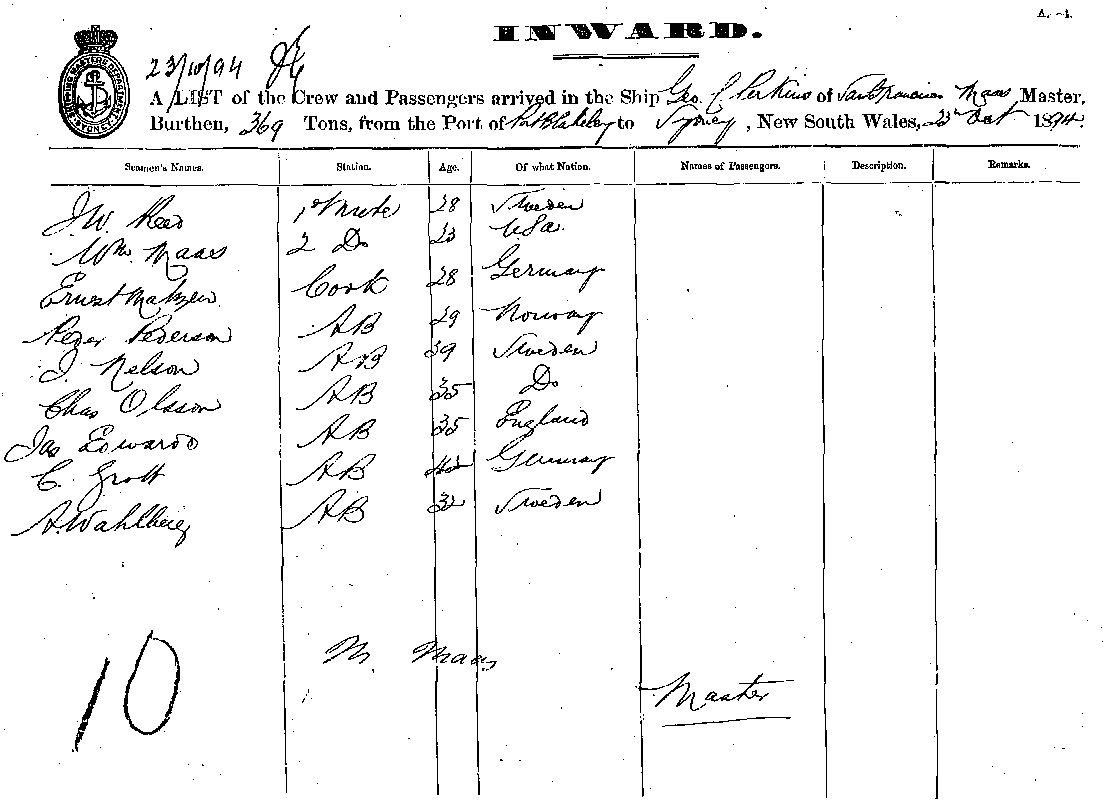 A.—4.
INWARD.
23/10/94
A LIST of the Crew and Passengers arrived in the Ship Geo. C. Perkins of San Francisco Maas Master,
Burthen, 369 Tons, from the Port of Port Blakeley to Sydney, New South Wales, 23rd Oct 1894.
Seamen's Names. Station. Age. Of what Nation. Names of Passengers. Description. Remarks.
J. W. Reed 1st Mate 28 Sweden
Wm. Maas 2 Do 23 USa.
Ernst Matzen Cook 28 Germany
Peder Pederson AB 29 Norway
J. Nelson AB 39 Sweden
Chas Olsson AB 35 Do
Jas Edwards AB 35 England
C. Grott AB Germany
A. Wahlberg AB 32 Sweden
M. Maas
Master
10